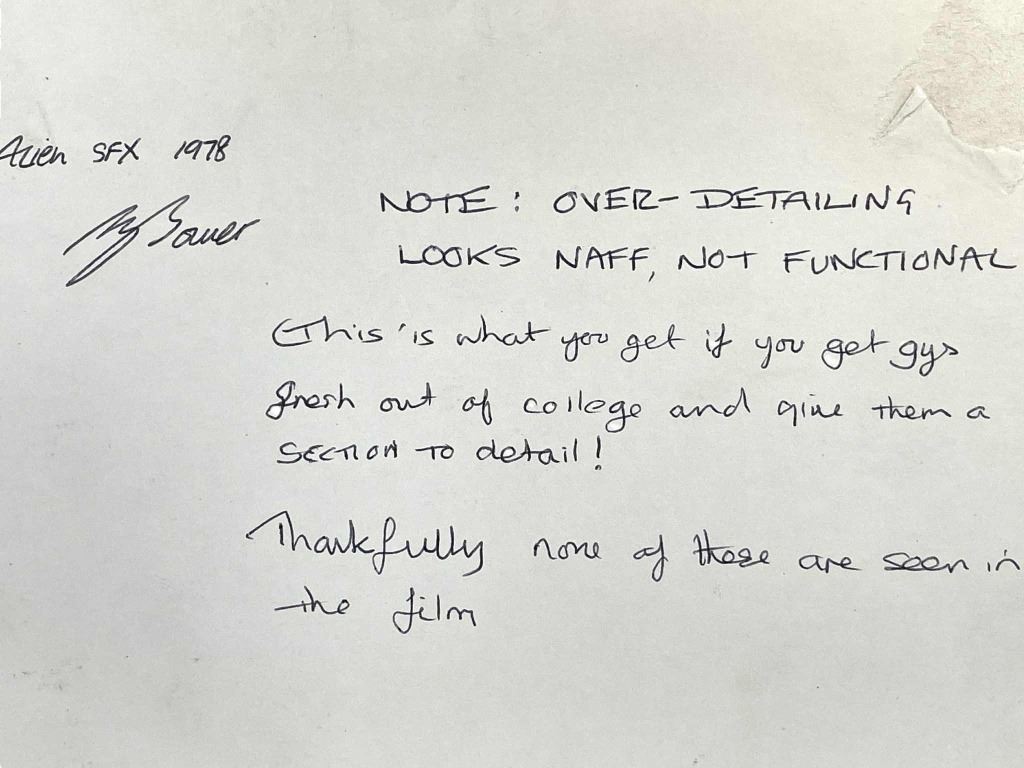 Alien SFX 1978
Bower
NOTE: OVER-DETAILING
LOOKS NAFF, NOT FUNCTIONAL
This is what you get if you get gys
fresh out of college and give them a
SECTION TO detail!
Thankfully none of these are seen in
the film